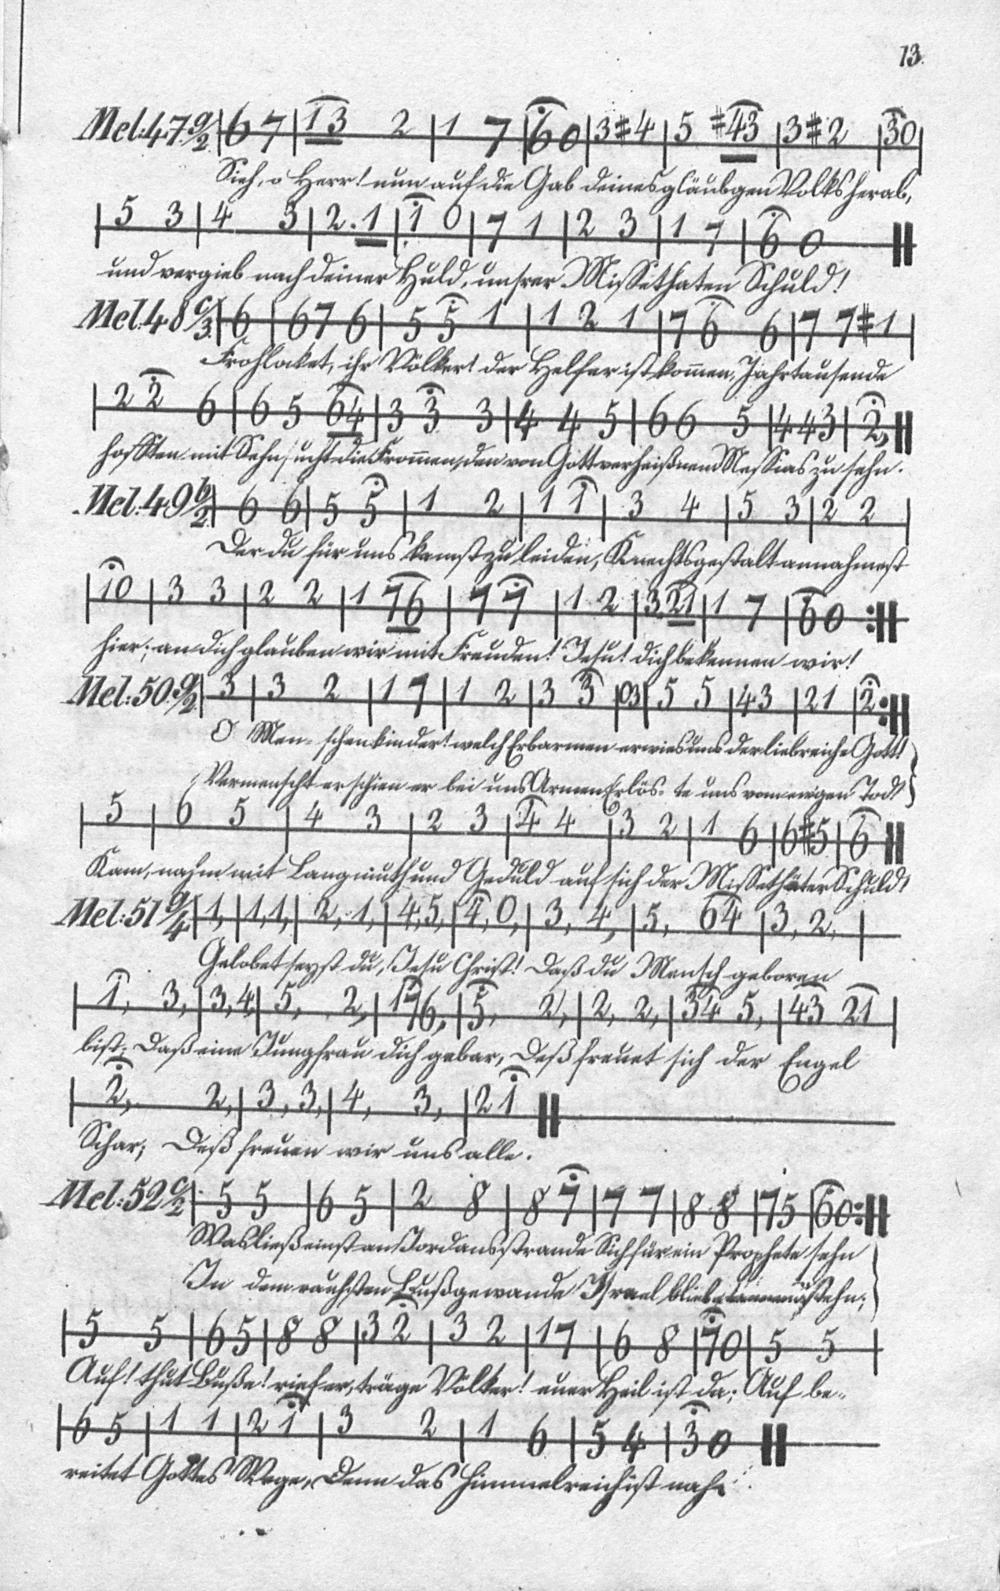 13.
Mel: 47. g/2 | 6 7 | 1 3 2 | 1 7 | 6 0 | 3 #4 | 5 #43 | 3 #2 | 30 |
Sieh, o Herr! nun auf die Gab deines gläubgen Volks herab,
| 5 3 | 4 3 | 2. 1 | 1 0 | 7 1 | 2 3 | 1 7 | 6 0 ||
und vergieb nach deiner Huld, unsrer Missethaten Schuld!
Mel. 48 c/3 | 6 | 6 7 6 | 5 5 1 | 1 2 1 | 7 6 6 | 7 7 #1 |
Frohlocket, ihr Völker! der Helfer ist kom̄en, Jahrtausende
| 2 2 6 | 6 5 64 | 3 3 3 | 4 4 5 | 6 6 5 | 4 4 3 | 2, ||
hofften mit Sehnsucht die From̄en, den von Gott verheißnen Messias zu sehn.
Mel: 49 b/2 | 6 6 | 5 5 | 1 2 | 1 1 | 3 4 | 5 3 | 2 2 |
Der du für uns kamst zu leiden, Knechtsgestalt annahmest
| 10 | 3 3 | 2 2 | 1 76 | 7 7 | 1 2 | 3 21 | 1 7 | 6 0 :||
hier; an dich glauben wir mit Freuden! Jesu! dich bekennen wir!
Mel: 50. g/2 | 3 | 3 2 | 1 7 | 1 2 | 3 3 | 03 | 5 5 | 43 | 21 | 2 :||
O Men- schenkinder! welch Erbarmen erwies uns der liebreiche Gott!
Vermenscht erschien er bei uns Armen Erlös- te uns vom ewgen Tod!
| 5 | 6 5 | 4 3 | 2 3 | 4 4 | 3 2 | 1 6 | 6 #5 | 6 ||
Kam, nahm mit Langmuth und Geduld auf sich der Missethäter Schuld!
Mel: 51 g/4 | 1, | 1, 1, | 2, 1, | 4, 5, | 4, 0, | 3, 4, | 5, 64 | 3, 2, |
Gelobet seyst du, Jesu Christ! Daß du Mensch geboren
| 1, 3, | 3, 4, | 5, 2, | 176, | 5, 2, | 2, 2, | 34 5, | 43 21 |
bist; Daß eine Jungfrau dich gebar, Deß freuet sich der Engel
| 2, 2, | 3, 3, | 4, 3, | 2 1 ||
Schar; Deß freuen wir uns alle.
Mel: 52 c/2 | 5 5 | 6 5 | 2 8 | 8 7 | 7 7 | 8 8 | 75 | 60 :||
Was ließ einst an Jordans strande Sich für ein Prophete sehn
In dem rauhsten Bußgewande Israel blieb
| 5 5 | 6 5 | 8 8 | 3 2 | 3 2 | 17 | 6 8 | 70 | 5 5 |
Auf! thut Buße! rief er, träge Völker! euer Heil ist da; Auf be-
| 6 5 | 1 1 | 2 1 | 3 2 | 1 6 | 5 4 | 3 0 ||
reitet Gottes Wege, Denn das Himmelreich ist nah.